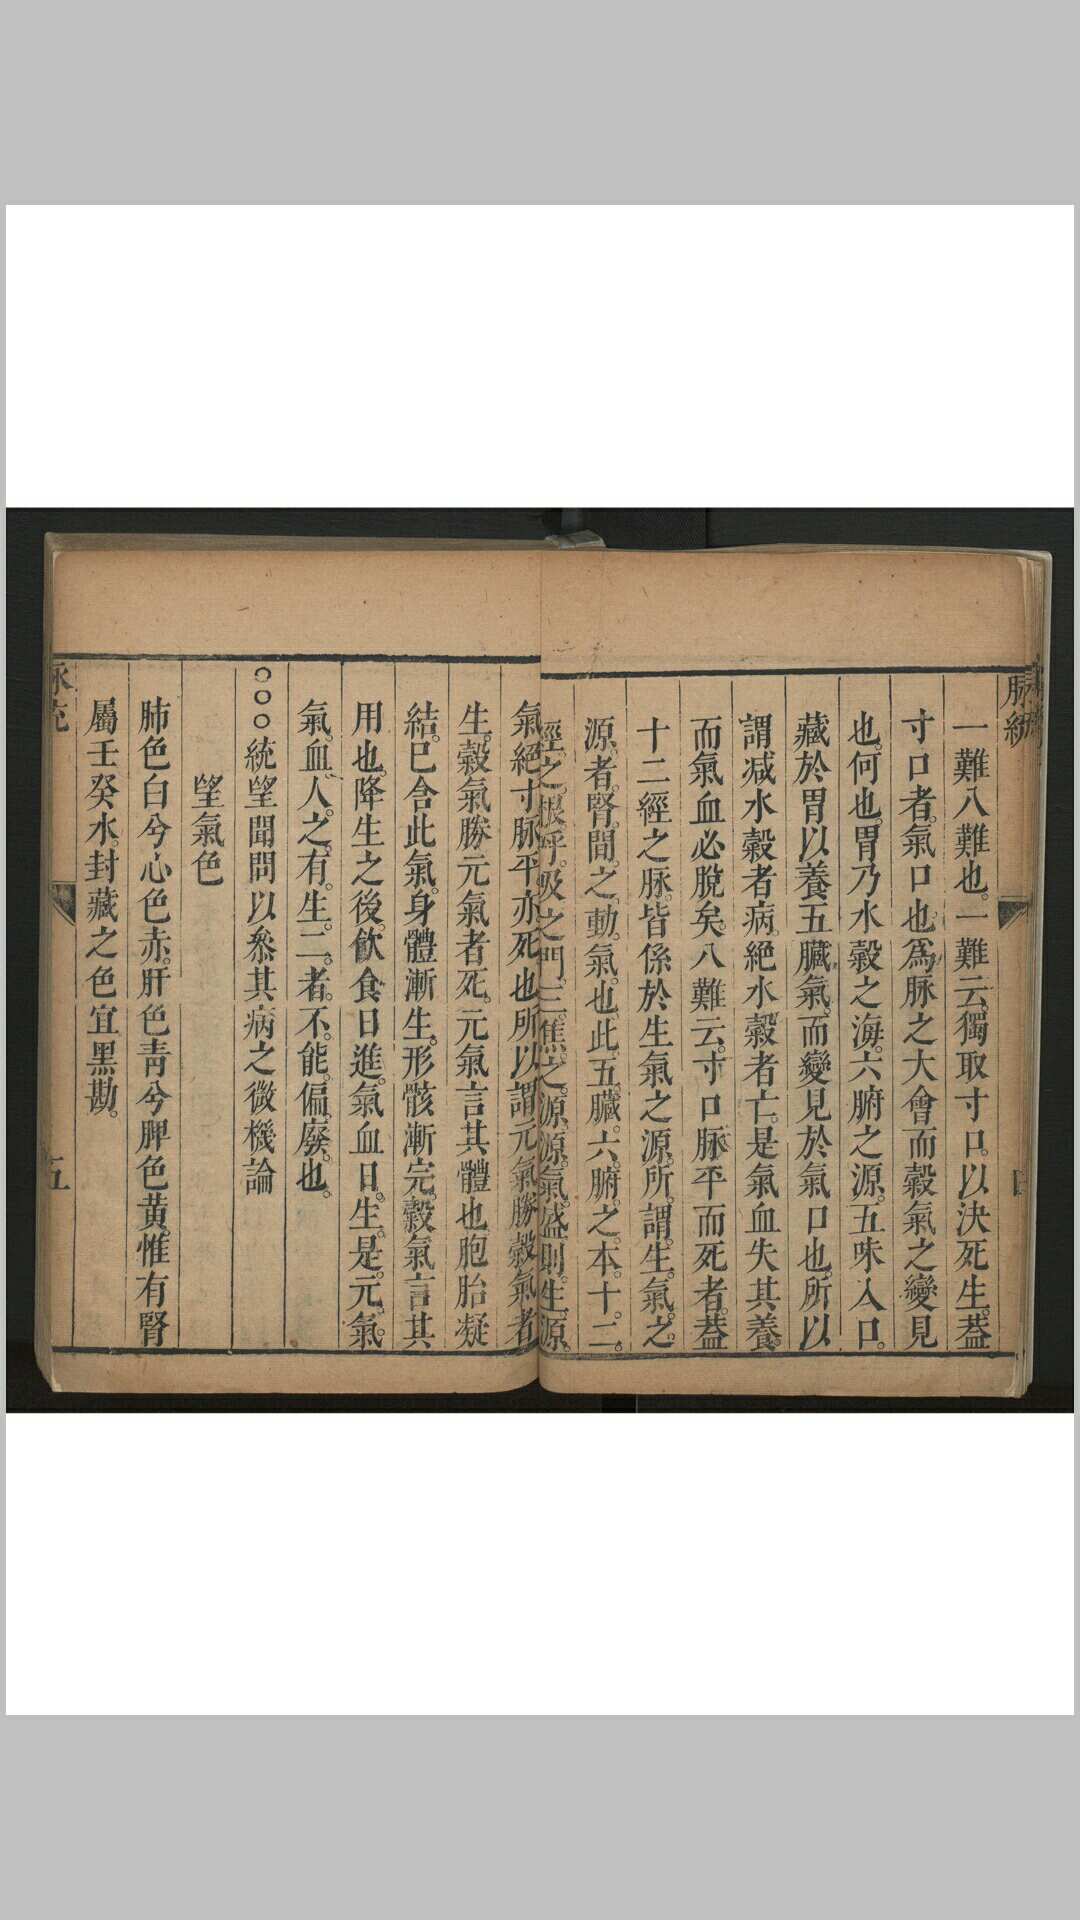 脉統
四
一難八難也。一難云。獨取寸口。以決死生。葢
寸口者。氣口也。爲脉之大會。而穀氣之變見
也。何也。胃乃水穀之海。六腑之源。五味入口。
藏於胃。以養五臟氣。而變見於氣口也。所以
謂减水穀者病。絕水穀者亡。是氣血失其養。
而氣血必脫矣。八難云。寸口脉平而死者。葢
十二經之脉。皆係於生氣之源。所。謂。生。氣。之。
源。者。腎。間。之。動。氣。也。此。五。臟。六。腑。之。本。十。二。
經。之。根。呼。吸。之。門。三。焦。之。源。源。氣。盛。則。生。源。
氣絕寸脉平亦死也。所以謂元氣勝穀氣者
生。穀氣勝元氣者死。元氣言其體也。胞胎凝
結。巳含此氣。身體漸生。形骸漸完。穀氣言其
用也。降生之後。飲食日進。氣血日。生。是。元。氣。
氣。血。人。之。有。生。二。者。不。能。偏。廢。也。
○○○統望聞問以叅其病之微機論
望氣色
肺色白兮心色赤。肝色靑兮脾色黃。惟有腎
屬壬癸水。封藏之色宜黑勘。
脉統
五